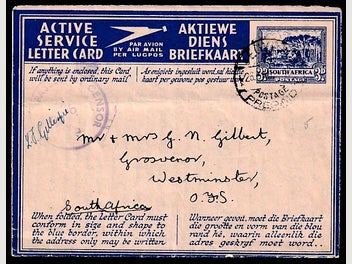 ACTIVE
SERVICE
LETTER CARD
PAR AVION
BY AIR MAIL
PER LUGPOS
AKTIEWE
DIENS
BRIEFKAART
SOUTH AFRICA
3D
POSTAGE
If anything is enclosed, this Card
will be sent by ordinary mail
As enigiets ingesluit word, sal hierdie
kaart per gewone pos gestuur word
Mr + Mrs G. N. Gilbert,
Grosvenor,
Westminster,
O.F.S.
South Africa
When folded, the Letter Card must
conform in size and shape to
the blue border, within which
the address only may be written
Wanneer gevou, moet die Briefkaart
die grootte en vorm van die blou
rand hê, waarin alleenlik die
adres geskryf moet word.